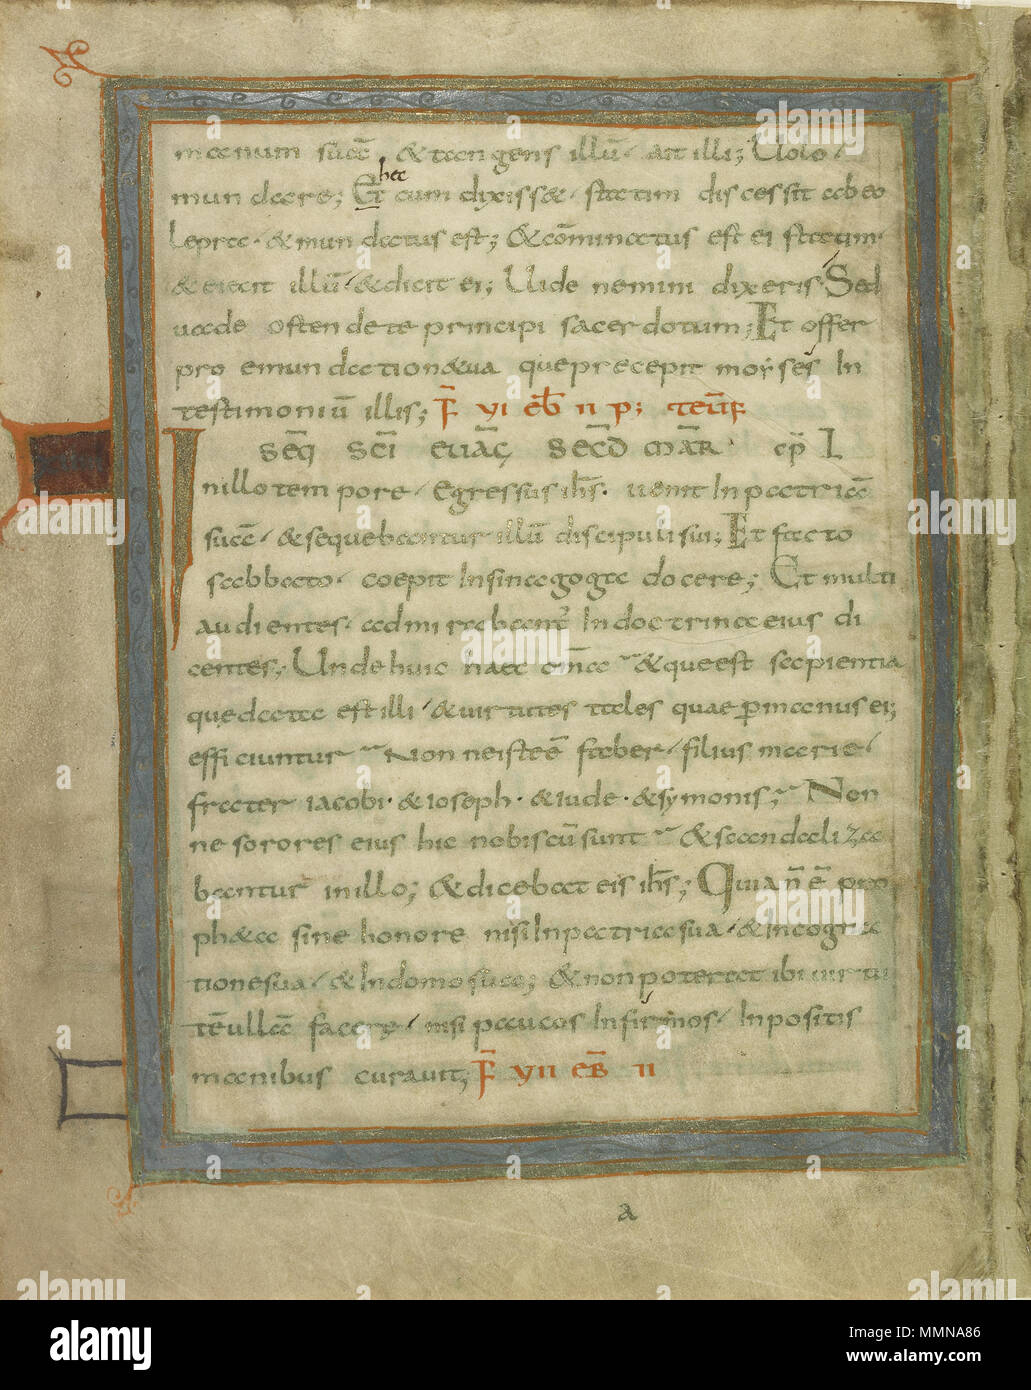 manum suā, & tangens illū, ait illi; Uolo,
hec
mundare; Et cum dixiss&, statim discessit ab eo
lepra, & mundatus est; & cōminatus est ei statim,
& eiecit illū, & dicit ei; Uide nemini dixeris, Sed
uade ostende te principi sacerdotum; Et offer
pro emundation&ua que precepit moyses In
testimoniū illis; F VI EB II P; 
SEQ SCI EUAG SECD MAR CP L
Inillo tempore, Egressus ihs. uenit Inpatriā
suā, & sequebantur illū discipuli sui; Et facto
sabbato, coepit Insinagoga docere; Et multi
audientes, admirabant Indoctrina eius di
centes; Unde huic haec omā & que est sapientia
que data est illi, & uirtutes tales quae p manus ei;
efficiuntur Non ne iste ē faber, filius marie,
frater iacobi. & ioseph. & iude. & symonis; Non
ne sorores eius hic nobiscū sunt & scandaliza
bantur in illo; & dicebat eis ihs; Quia n ē pro
ph&a sine honore nisi Inpatria sua, & Incogna
tione sua, & Indomo sua; & non poterat ibi uirtu
tē ullā facere, nisi paucos Infirmos, Inpositis
manibus curauit; F VII EB II
a
alamy
Image ID: MMNA86
www.alamy.com